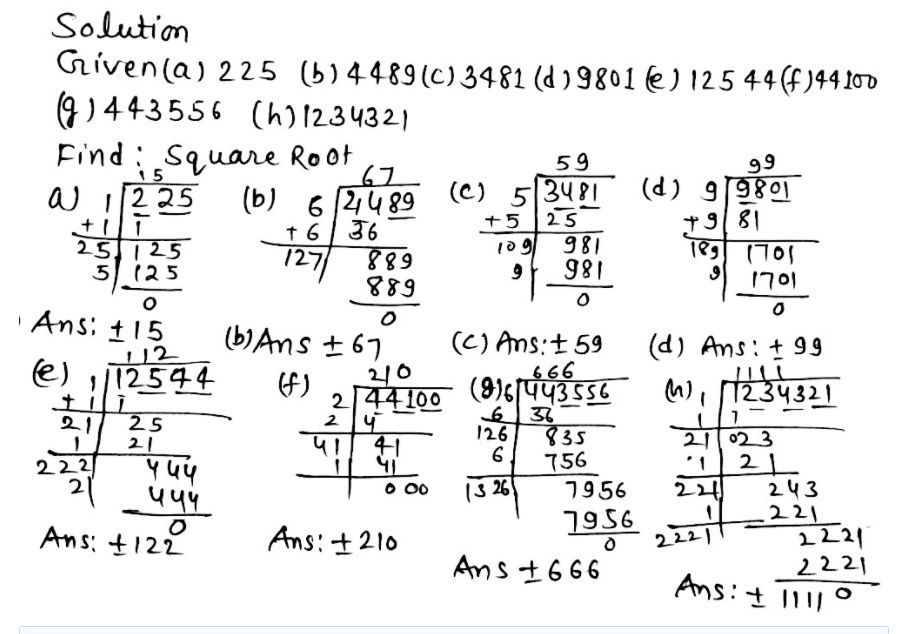 Solution
Given (a) 225 (b) 4489 (c) 3481 (d) 9801 (e) 12544 (f) 44100
(g) 443556 (h) 1234321
Find : Square Root
a)
15
1 225
+1 1
25 125
5 125
0
Ans: ±15
(b)
67
6 4489
+6 36
127 889
889
0
(b) Ans ±67
(c)
59
5 3481
+5 25
109 981
9 981
0
(c) Ans: ±59
(d)
99
9 9801
+9 81
189 1701
9 1701
0
(d) Ans: ±99
(e)
112
1 12544
+1 1
21 25
1 21
222 444
2 444
0
Ans: ±122
(f)
210
2 44100
2 4
41 41
1 41
0 00
Ans: ±210
(g)
666
6 443556
6 36
126 835
6 756
1326 7956
7956
0
Ans ±666
(h)
1111
1 1234321
1 1
21 023
1 21
221 243
1 221
2221 2221
2221
0
Ans: ± 1111